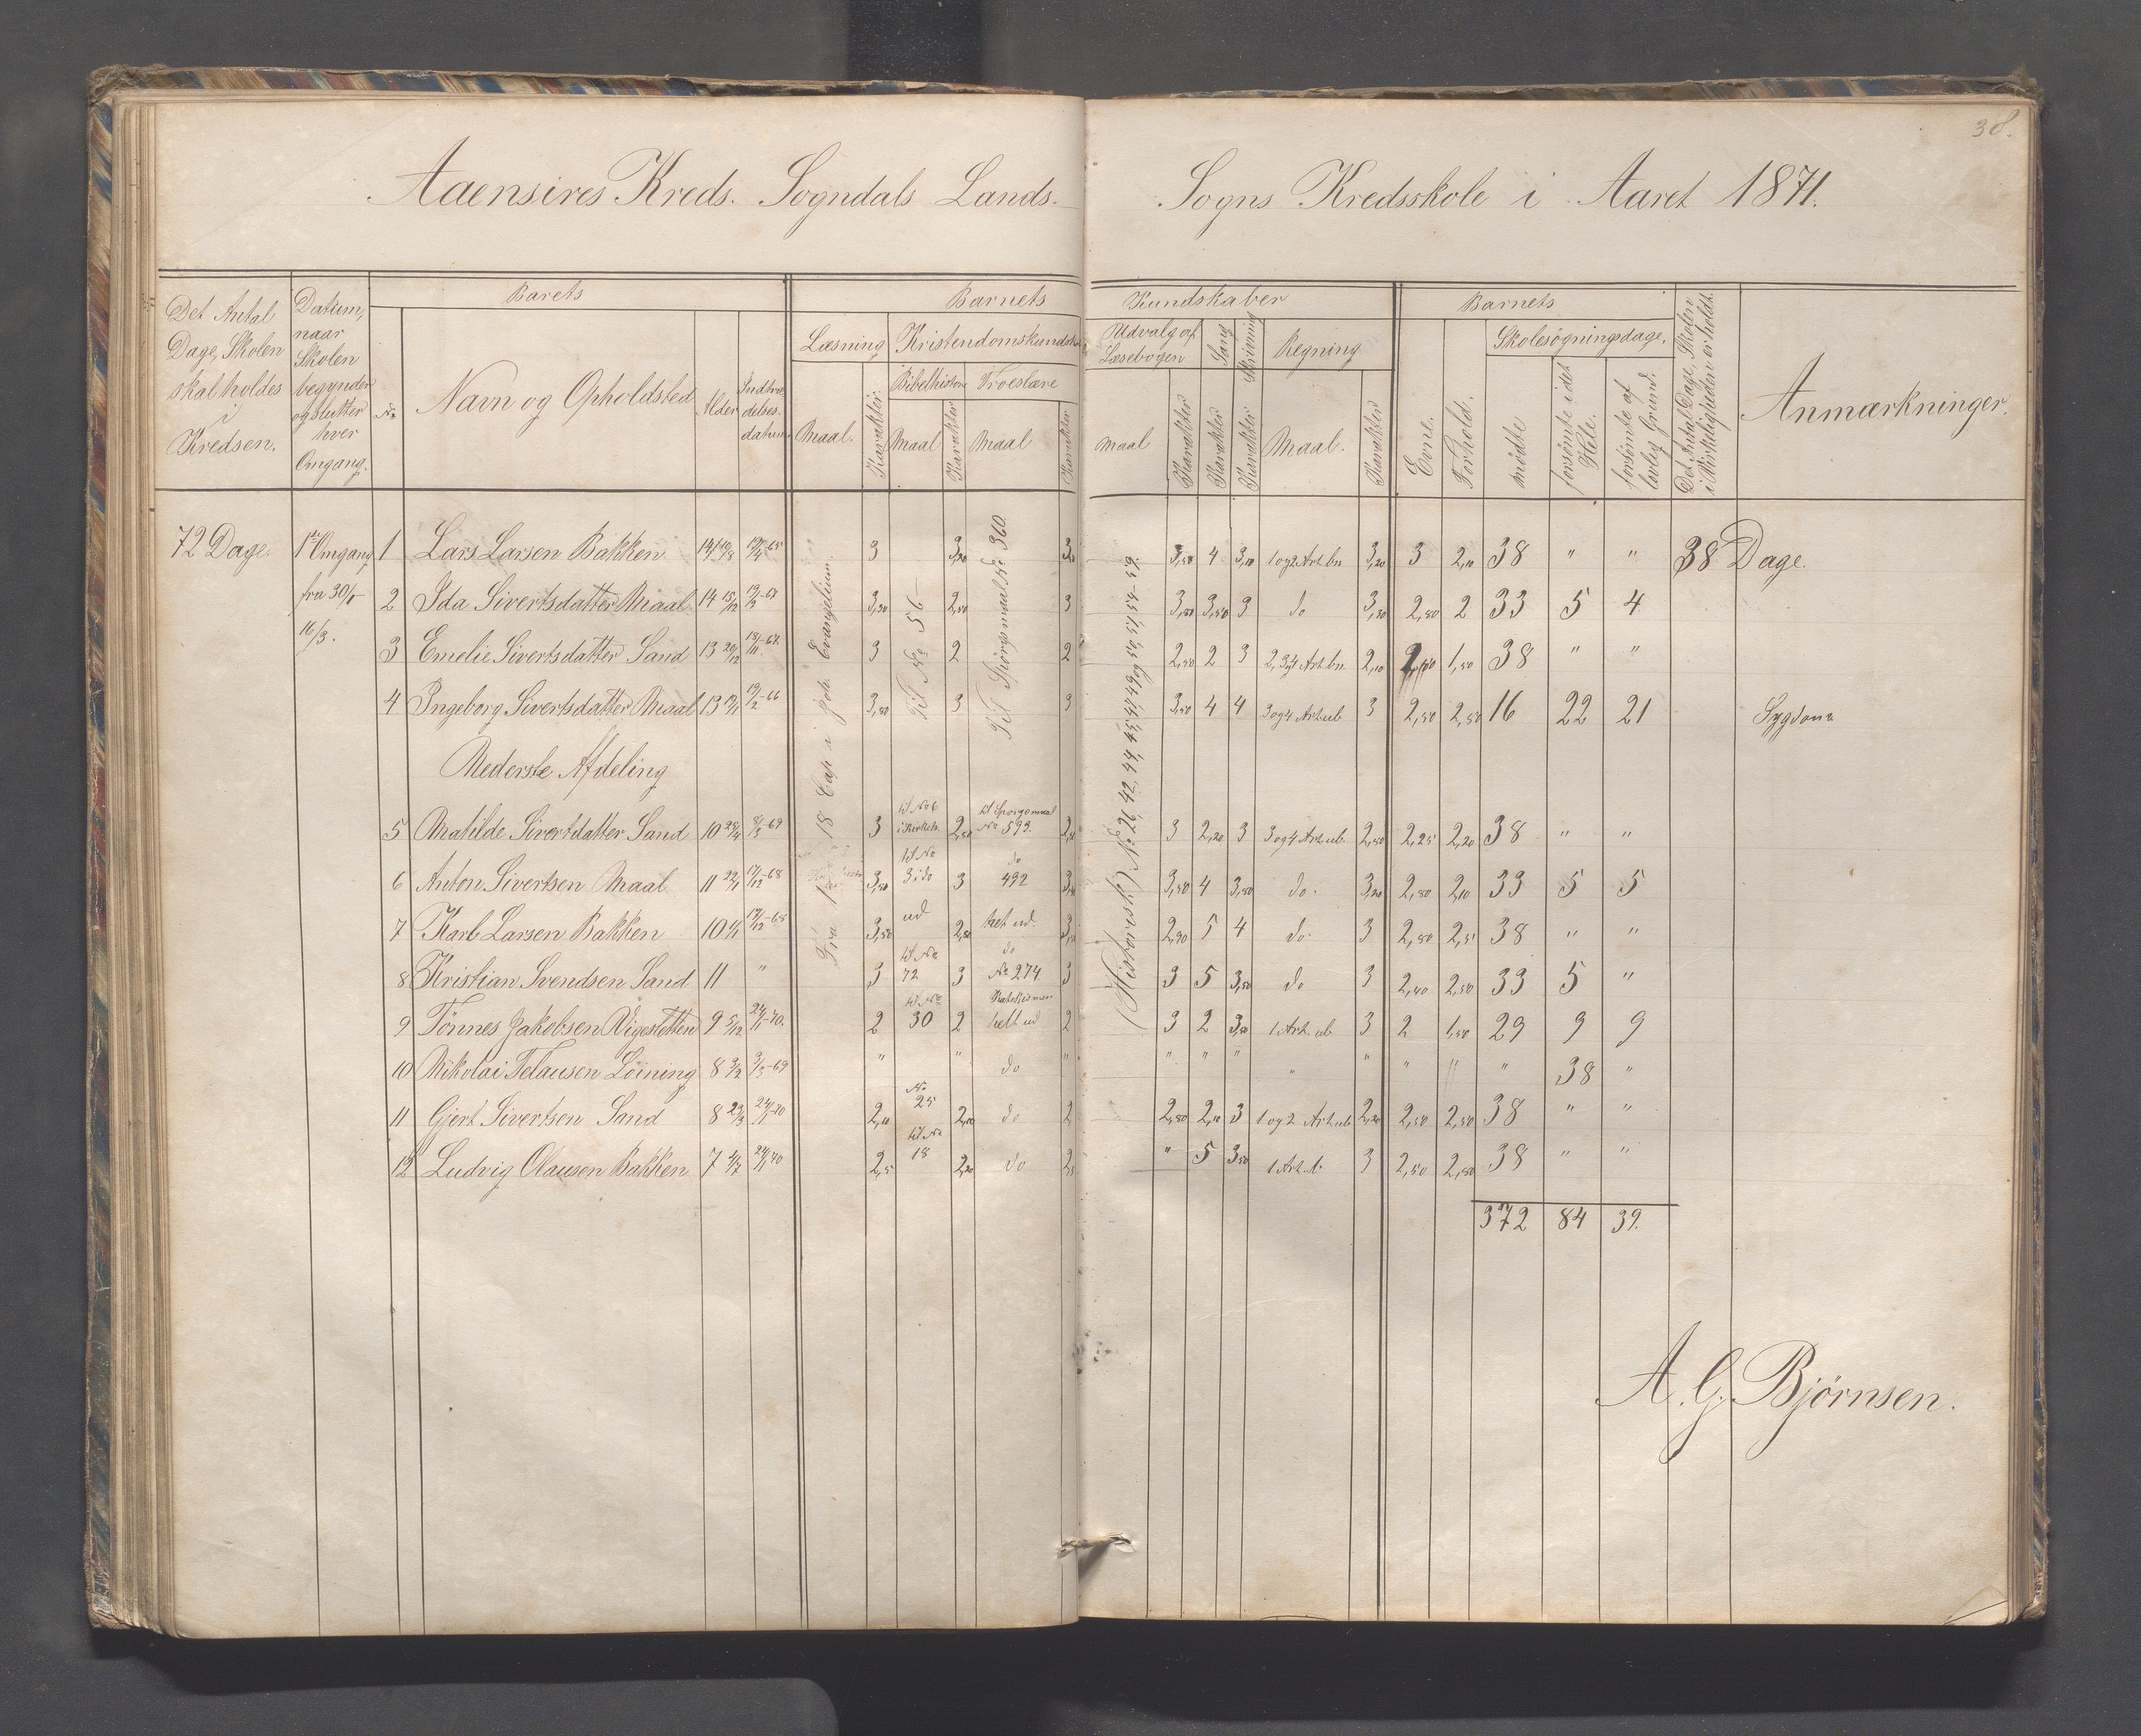 38.
Aaensires Kreds. Sogndals Lands- Sogns Kredsskole i Aaret 1871.
Det Antal Dage, Skolen skal holdes i Kredsen.
Datum, naar Skolen begynder og slutter hver Omgang.
Barets
No
Navn og Opholdsted
Alder
Indtrædelsesdatum
Barnets Kundskaber
Læsning
Maal.
Karakter
Kristendomskundskab
Bibelhistorie
Maal
Karakter
Troeslære
Maal
Karakter
Udvalg af Læsebogen
Maal
Karakter
Sang
Karakter
Skrivning
Karakter
Regning
Maal.
Karakter
Barnets
Evne.
Forhold.
Skolesøgningsdage.
mødte
forsømte i det Hele.
forsømte af lovlig Grund.
Det Antal Dage, Skolen i Virkeligheden er holdt.
Anmærkninger.
72 Dage.
1ste Omgang
fra 30/1-
16/3.
Fra 1 - 18 Cap i Joh. Evangelium.
Til No 56
Til Spørgsmaal No 360
(Historisk) No 26, 42, 44, 45, 47, 49 og 50, 51, 54-59.
1 Lars Larsen Bakken 14 3 4 3,10 1 og 2 Art. bn 3,20 3 2,10 38 " " 38 Dage.
2 Ida Sivertsdatter Maal 14 15/12 3 3,50 3 do 2,50 2 33 5 4
3 Emelie Sivertsdatter Sand 13 20/12 3 2 2 2,50 2 3 2, 3 og 4 Art. bn. 2,10 1,50 38 " "
4 Ingeborg Sivertsdatter Maal 13 19/2-66 3,50 3 3 3,50 4 4 3 og 4 Art. ub 3 2,50 2,50 16 22 21 Sygdom
Nederste Afdeling
5 Matilde Sivertdatter Sand 10 28/4 8/3-69 3 til No 6 i Kirkeh. 2,50 til Spørgsmaal No 593. 3 2,20 3 3 og 4 Art. ub. 2,50 2,25 2,20 38 " "
6 Anton Sivertsen Maal 11 22/1 17/12-68 3,50 til No 3 i do 3 do 492 3,50 4 3,50 do. 3,20 2,50 2,10 33 5 5
7 Karl Larsen Bakken 10 17/12-68 3,50 ud 2,50 helt ud. 2,90 5 4 do. 3 2,50 2,5 38 " "
8 Kristian Svendsen Sand 11 " 3 til No 72 3 do No 274 3 3 5 3,50 do 3 2,40 2,50 33 5 "
9 Tønnes Jakobsen Vigesletten 9 5/12 24/1-70. 2 til No 30 2 Katekismen helt ud 2 3 2 3,50 1 Art. ub 3 2 1,50 29 9 9
10 Nikolai Telausen Löining 8 3/2 3/3-69 " " do " " " " " " " " " 38 "
11 Gjert Sivertsen Sand 8 23/3 24/1-70 2,10 No 25 2,00 do 2 2,50 2,10 3 1 og 2 Art. ub 2,20 2,50 2,50 38 " "
12 Ludvig Olausen Bakken 7 4/7 24/1-70 2,5 til No 18 2,20 do " 5 3,50 1 Art. ub 3 2,50 2,50 38 " "
372 84 39.
A. G. Bjørnsen.